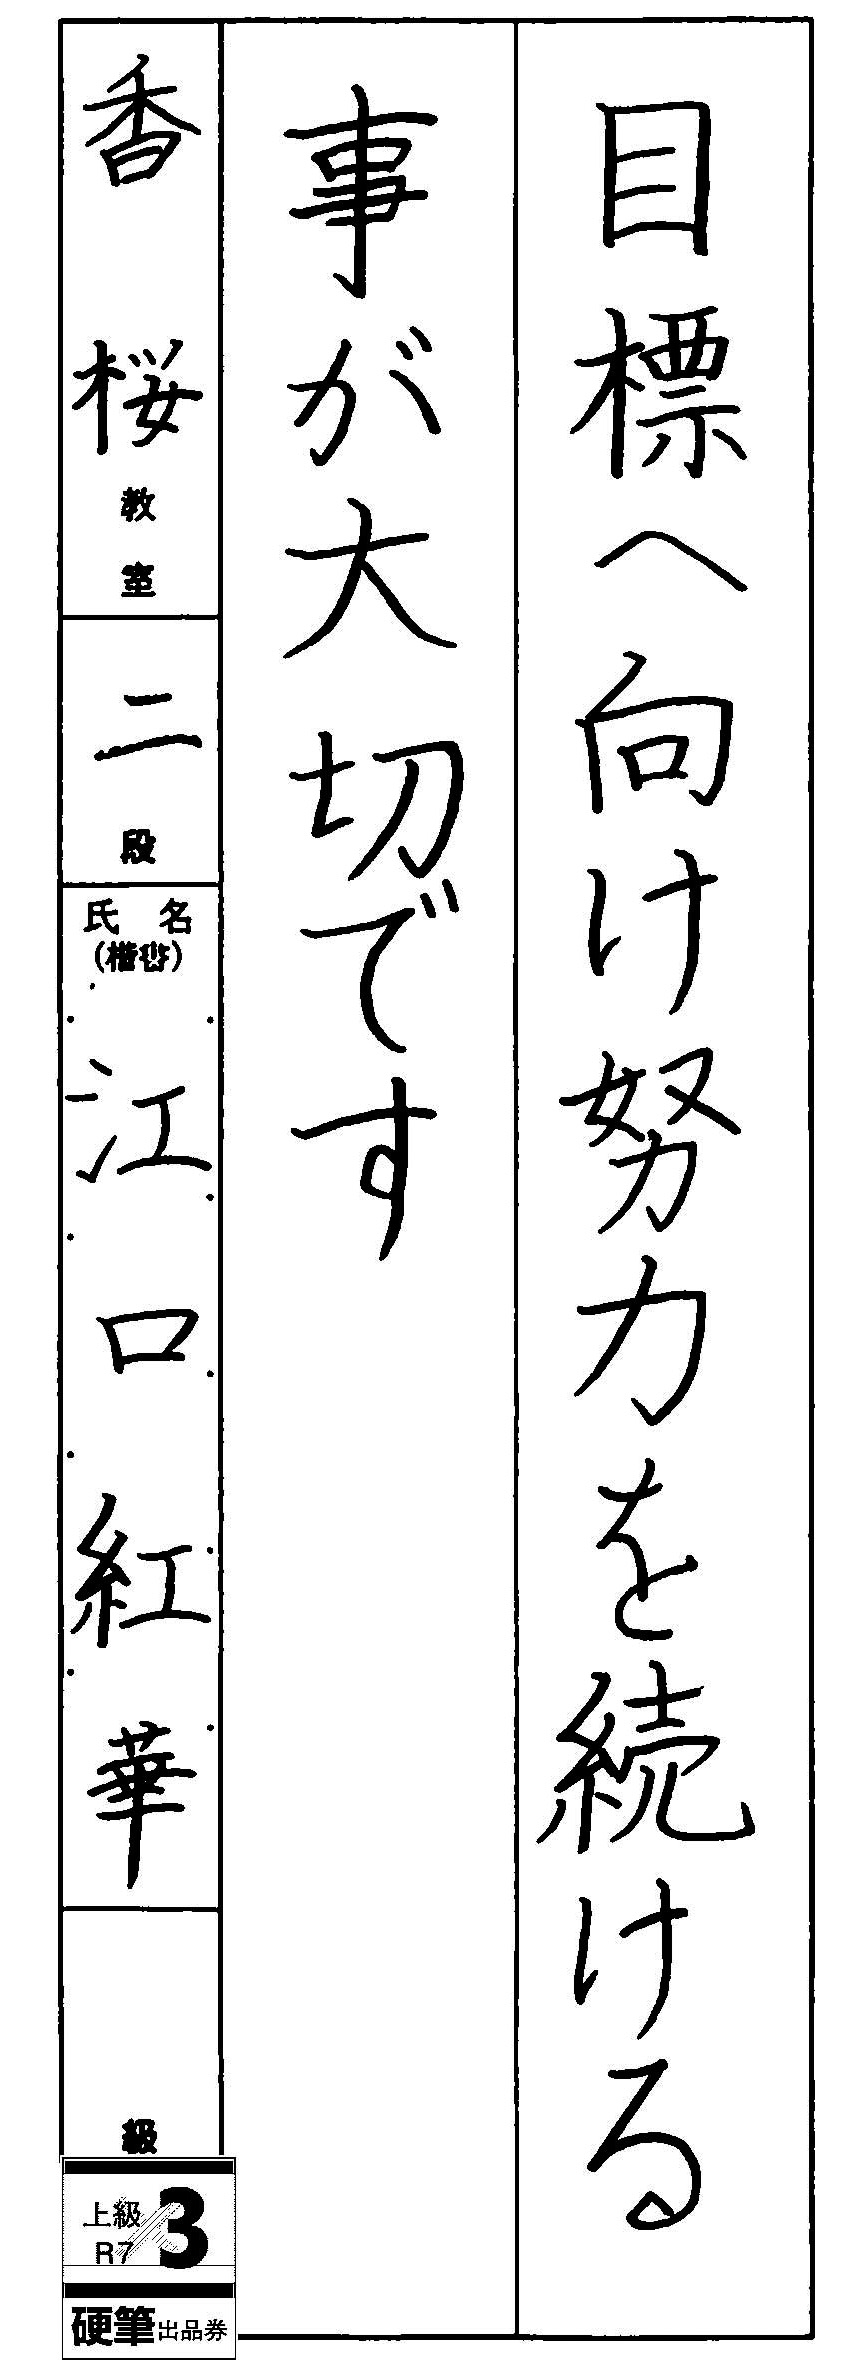 目標へ向け努力を続ける
事が大切です
香桜教室
二段
氏名
(楷書)
江口紅華
級
上級
R7
3
硬筆出品券